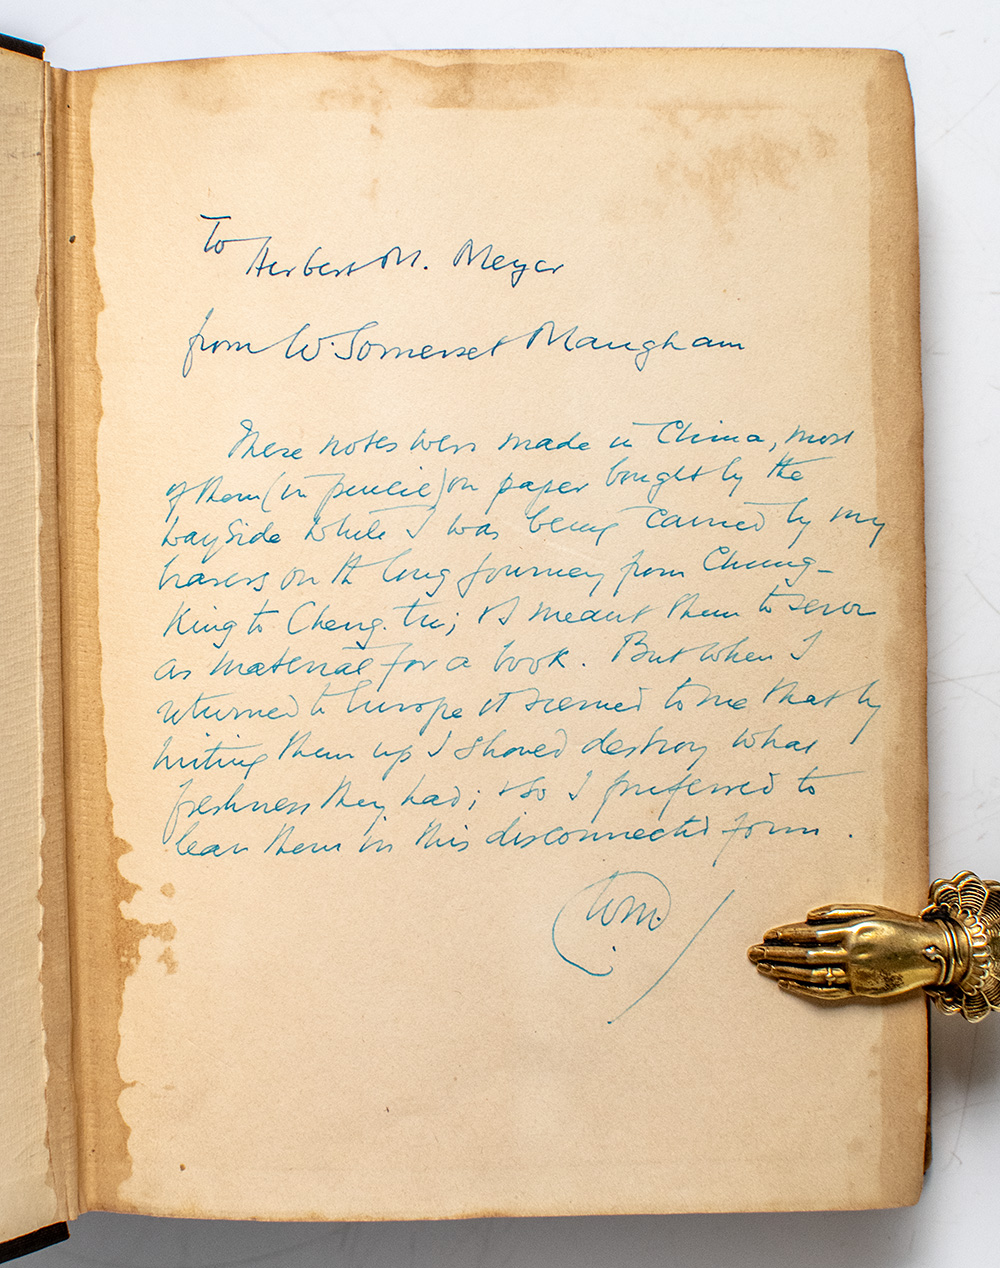 To
Herbert M. Meyer
from W. Somerset Maugham
These notes were made in China, most
of them (in pencil) on paper bought by the
wayside while I was being carried by my
bearers on the long journey from Chung-
King to Cheng-tu; & I meant them to serve
as material for a book. But when I
returned to Europe it seemed to me that by
writing them up I should destroy what
freshness they had; & so I preferred to
leave them in this disconnected form.
WSM.